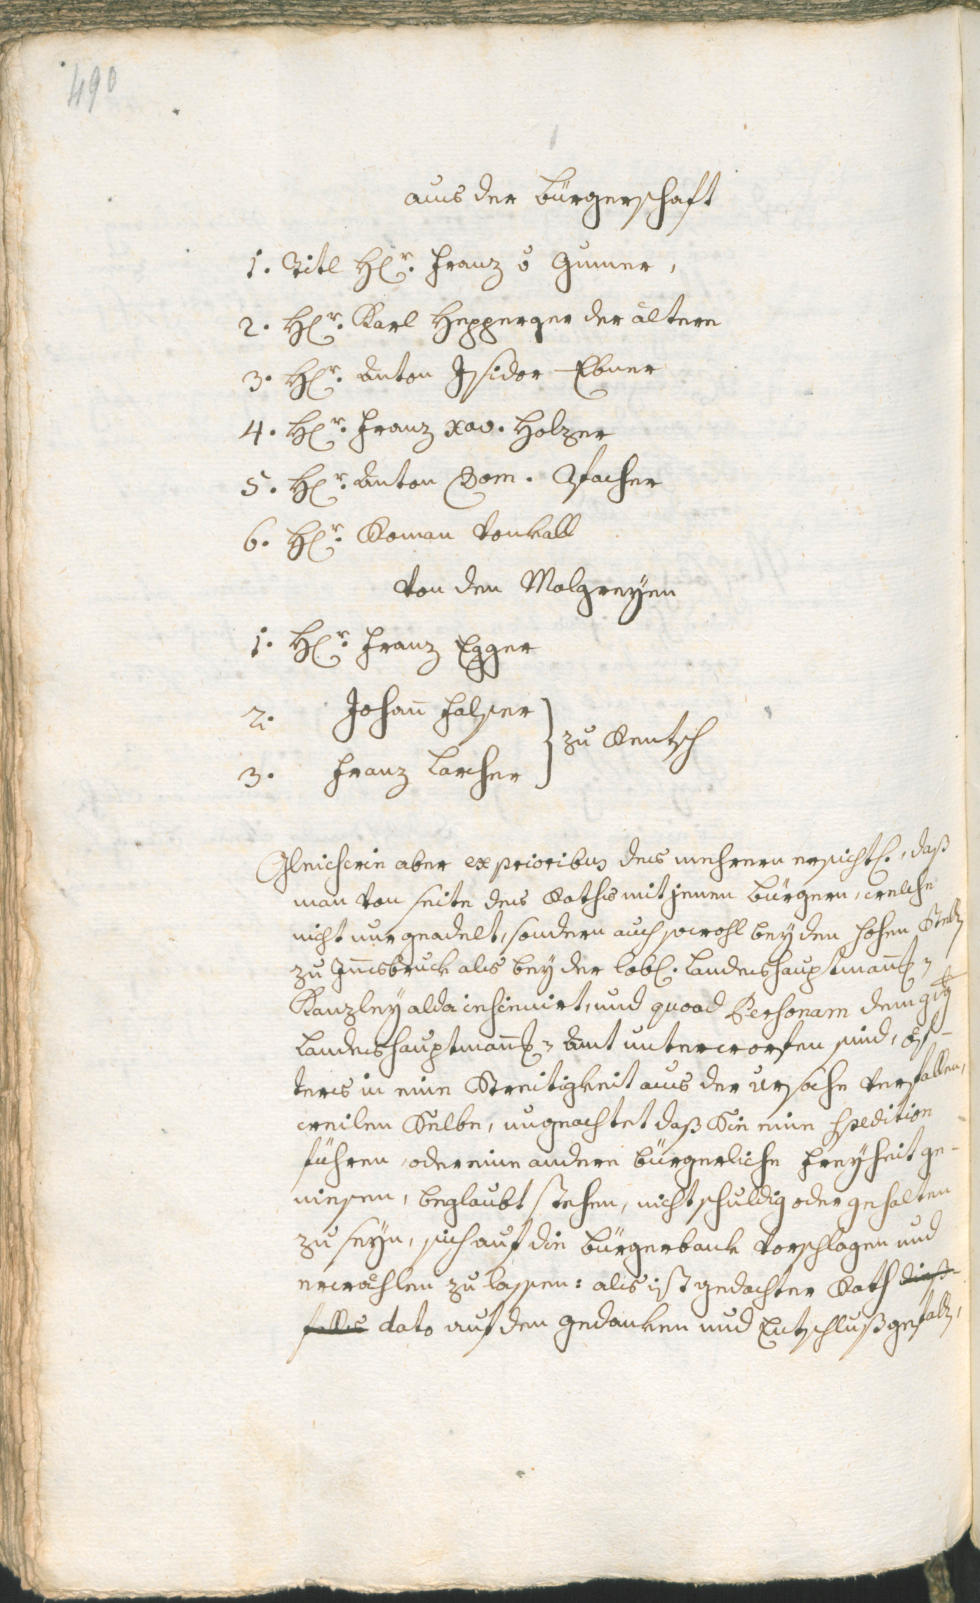 490
aus der bürgerschaft
1. Titl H(r. Franz v Gumer,
2. H(r. Karl Hepperger der ältere
3. H(r. Anton Isidor Ebner
4. H(r. Franz Xav. Holzer
5. H(r. Anton Dom. Pfacher
6. H(r. Roman Vonkall
Von den Malgreyen
1. H(r. Franz Egger
2. Johañ Falser
3. Franz Larcher } zu Rentsch
Gleichwie aber ex prioribus des mehrern ersichtl., daß
man von seite des Raths mit jenen bürgern, welche
nicht nur geadelt, sondern auch sowohl bey den hohen
zu Iñsbruck als bey der lobl. Landeshauptmañ-
Kanzley alda insinuirt, und quoad Personam dem
Landeshauptmañ- Amt unterworfen sind, öf-
ters in eine Streitigkeit aus der ursache verfallen,
weilen Selbe, ungeachtet daß Sie eine Spedition
führen, oder eine andere bürgerliche Freyheit ge-
niesen, beglaubt stehen, nicht schuldig oder gehalten
zu seyn, sich auf die bürgerbank vorschlagen und
erwählen zu lassen: als ist gedachter Rath dieß-
falls dato auf den gedanken und Entschluß gefalln,